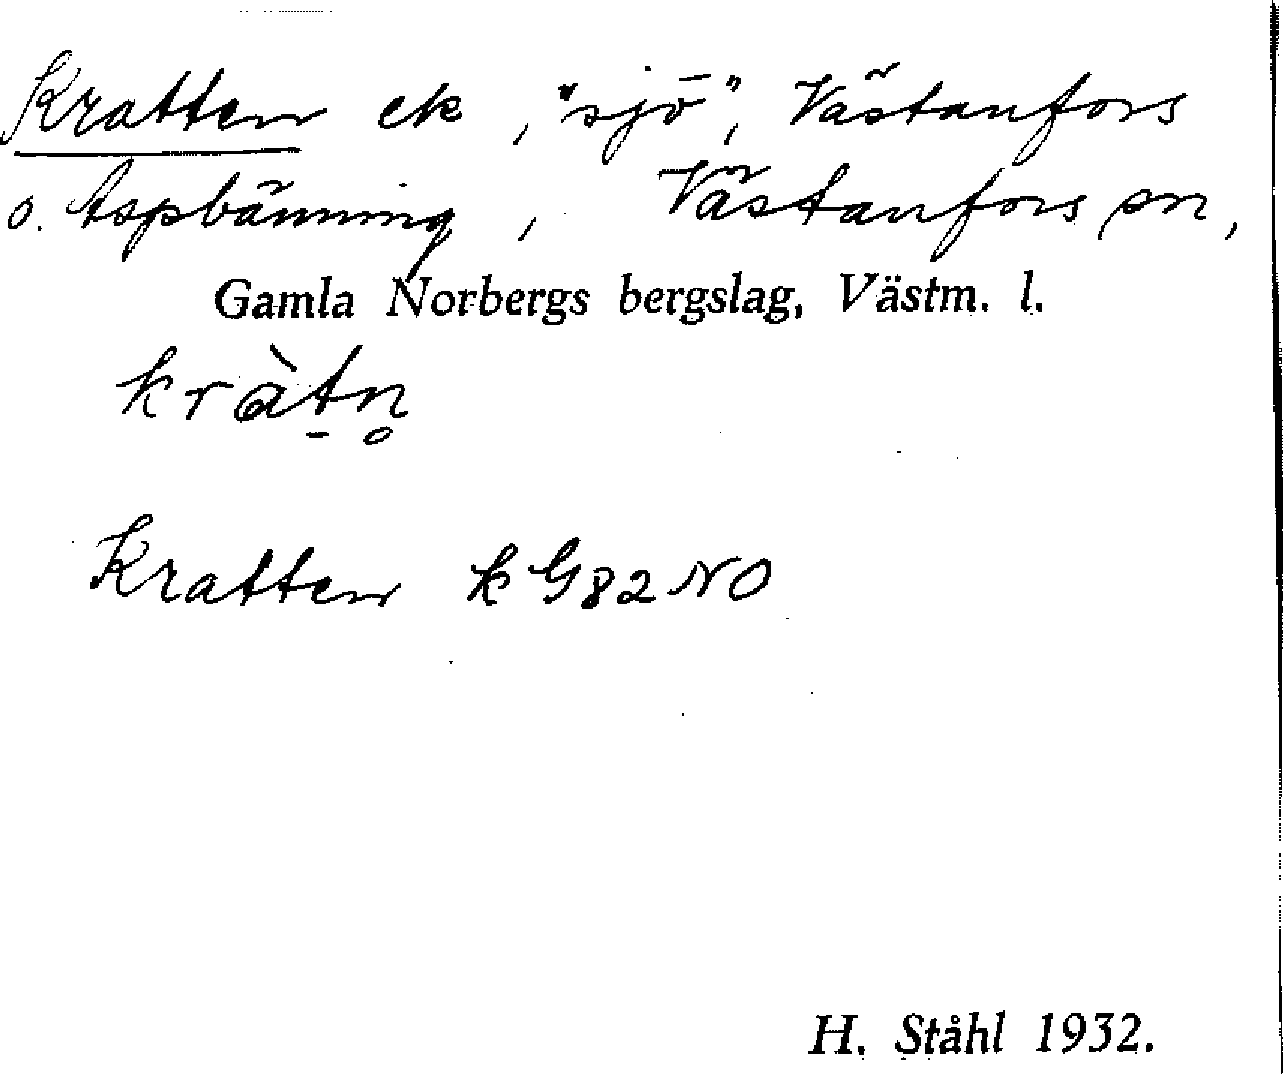 Kratten ek, "sjö", Västanfors
o. Aspbänning, Västanfors sn,
Gamla Norbergs bergslag, Västm. l.
kràt̠n̥
Kratten k G82NO
H. Ståhl 1932.